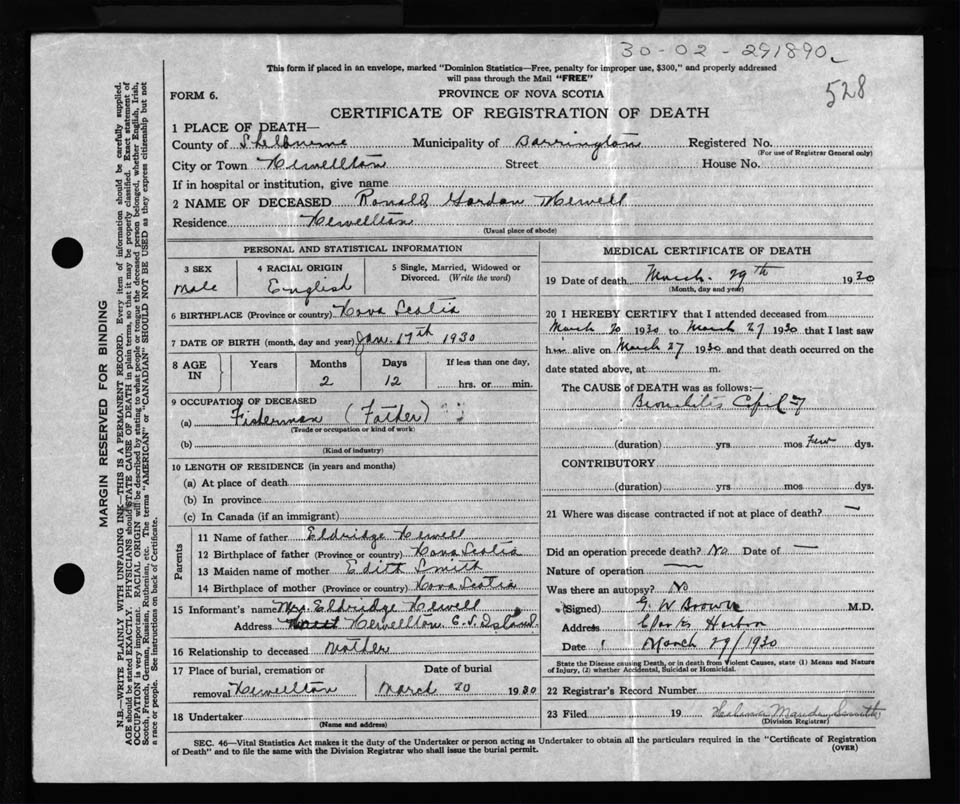 30-02-291890
This form if placed in an envelope, marked "Dominion Statistics—Free, penalty for improper use, $300," and properly addressed
will pass through the Mail "FREE"
528
FORM 6.
PROVINCE OF NOVA SCOTIA
CERTIFICATE OF REGISTRATION OF DEATH
1 PLACE OF DEATH—
County of Shelburne Municipality of Barrington Registered No.
(For use of Registrar General only)
City or Town Newellton Street House No.
If in hospital or institution, give name
2 NAME OF DECEASED Ronald Gordon Newell
Residence Newellton
(Usual place of abode)
PERSONAL AND STATISTICAL INFORMATION
3 SEX
Male
4 RACIAL ORIGIN
English
5 Single, Married, Widowed or
Divorced. (Write the word)
6 BIRTHPLACE (Province or country) Nova Scotia
7 DATE OF BIRTH (month, day and year) Jan. 17th 1930
8 AGE
IN
Years
Months
2
Days
12
If less than one day,
hrs. or min.
9 OCCUPATION OF DECEASED
(a) Fisherman (Father)
(Trade or occupation or kind of work)
(b)
(Kind of industry)
10 LENGTH OF RESIDENCE (in years and months)
(a) At place of death
(b) In province
(c) In Canada (if an immigrant)
Parents
11 Name of father Eldridge Newell
12 Birthplace of father (Province or country) Nova Scotia
13 Maiden name of mother Edith Smith
14 Birthplace of mother (Province or country) Nova Scotia
15 Informant's name Mrs. Eldridge Newell
Address Newellton C. S. Island
16 Relationship to deceased Mother
17 Place of burial, cremation or
removal Newellton
Date of burial
March 20 1930
18 Undertaker
(Name and address)
MEDICAL CERTIFICATE OF DEATH
19 Date of death March. 29th 1930
(Month, day and year)
20 I HEREBY CERTIFY that I attended deceased from
March 20 1930 to March 27 1930 that I last saw
him alive on March 27 1930 and that death occurred on the
date stated above, at m.
The CAUSE OF DEATH was as follows:—
(duration) yrs. mos few dys.
CONTRIBUTORY
(duration) yrs. mos. dys.
21 Where was disease contracted if not at place of death? —
Did an operation precede death? No Date of —
Nature of operation —
Was there an autopsy? No
(Signed) G. W Brown M.D.
Address Clarks Harbor
Date March 29/1930
State the Disease causing Death, or in death from Violent Causes, state (1) Means and Nature
of Injury, (2) whether Accidental, Suicidal or Homicidal.
22 Registrar's Record Number
23 Filed 19 Smith
(Division Registrar)
SEC. 46—Vital Statistics Act makes it the duty of the Undertaker or person acting as Undertaker to obtain all the particulars required in the "Certificate of Registration
of Death" and to file the same with the Division Registrar who shall issue the burial permit.
(OVER)
MARGIN RESERVED FOR BINDING
N.B.—WRITE PLAINLY WITH UNFADING INK—THIS IS A PERMANENT RECORD. Every item of information should be carefully supplied.
AGE should be stated EXACTLY. PHYSICIANS should STATE CAUSE OF DEATH in plain terms, so that it may be properly classified. Exact statement of
OCCUPATION is very important. RACIAL ORIGIN will be described by stating to what people or tongue the deceased person belonged, whether English, Irish,
Scotch, French, German, Russian, Ruthenian, etc. The terms "AMERICAN" or "CANADIAN" SHOULD NOT BE USED as they express citizenship but not
a race or people. See instructions on back of Certificate.